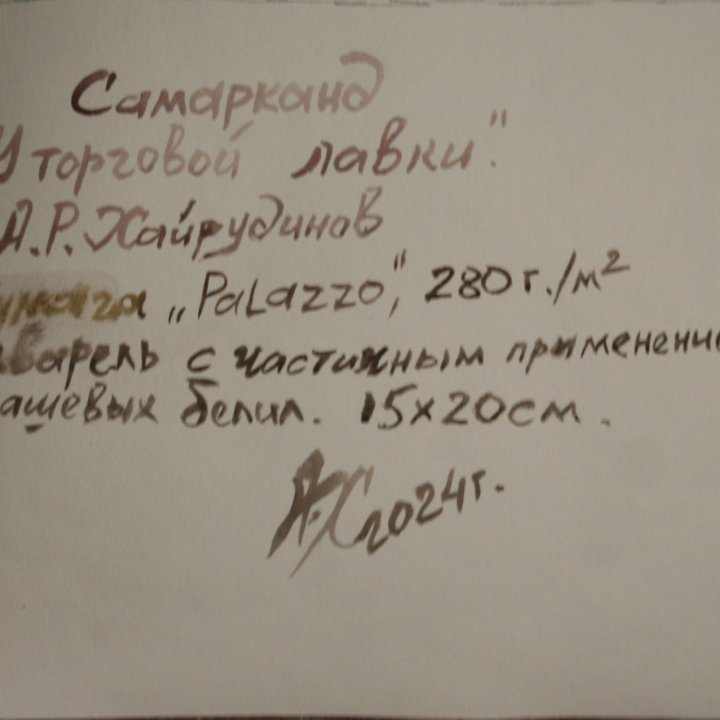 Самарканд
У торговой лавки".
А.Р. Хайрудинов
умага „Palazzo", 280 г./м²
кварель с частичным применением
ашевых белил. 15х20см.
А.Х 2024г.